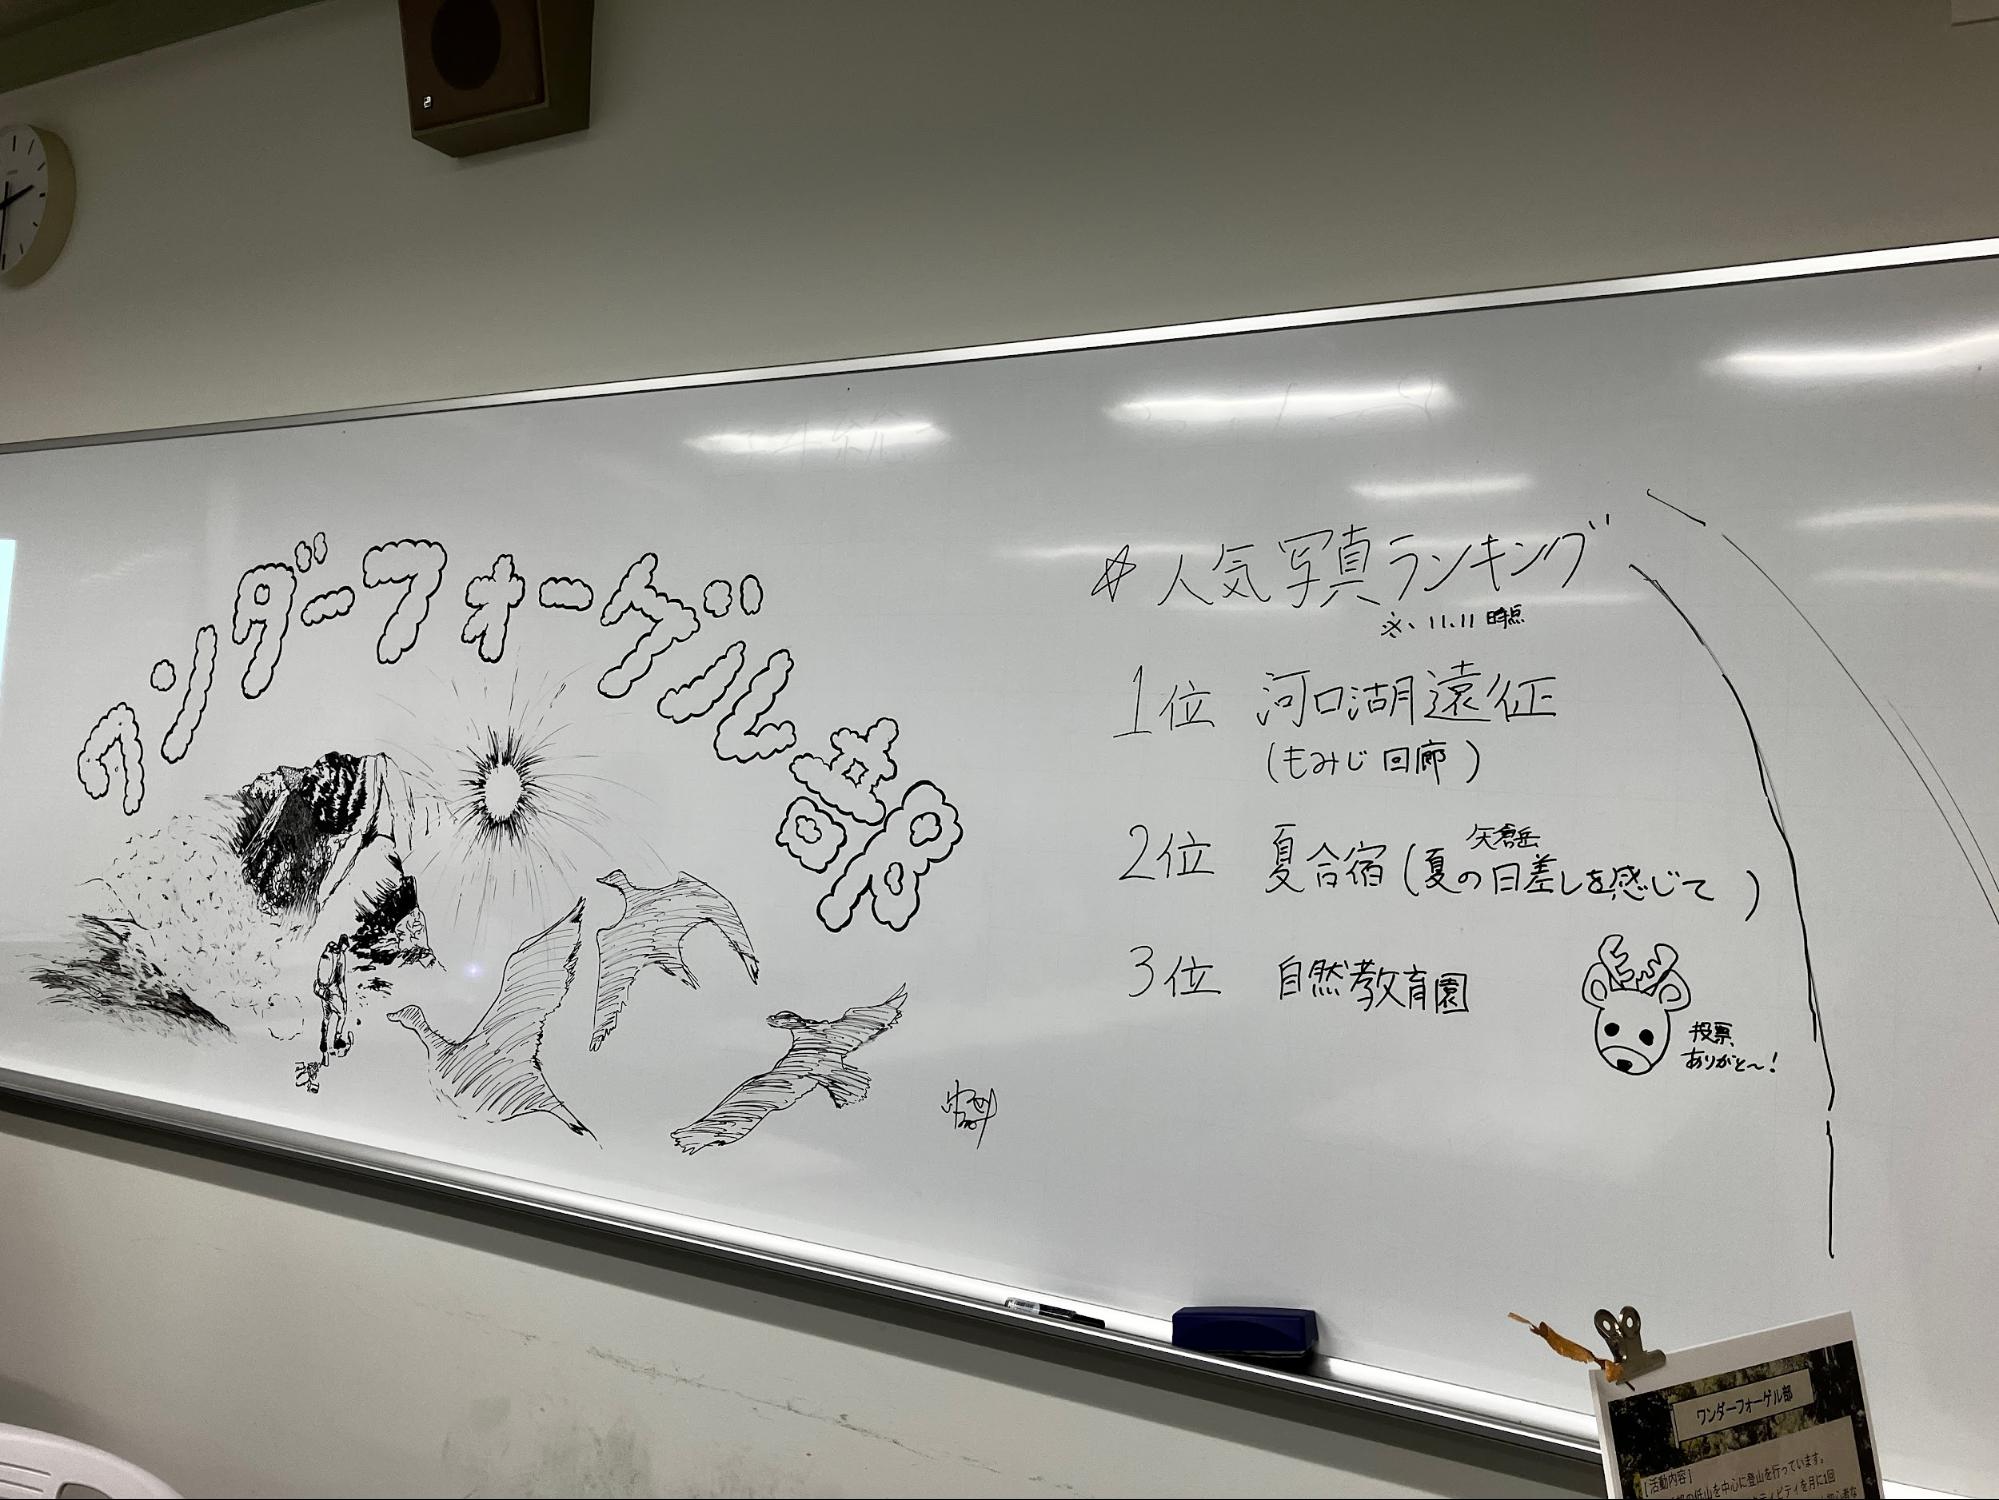 ワンダーフォーゲル部
☆人気写真ランキング
※ 11.11 時点
1位 河口湖遠征
(もみじ回廊)
2位 夏合宿(夏の日差しを感じて)
矢倉岳
3位 自然教育園
投票
ありがと〜!
ワンダーフォーゲル部
【活動内容】
の低山を中心に登山を行っています。
ティビティを月に1回